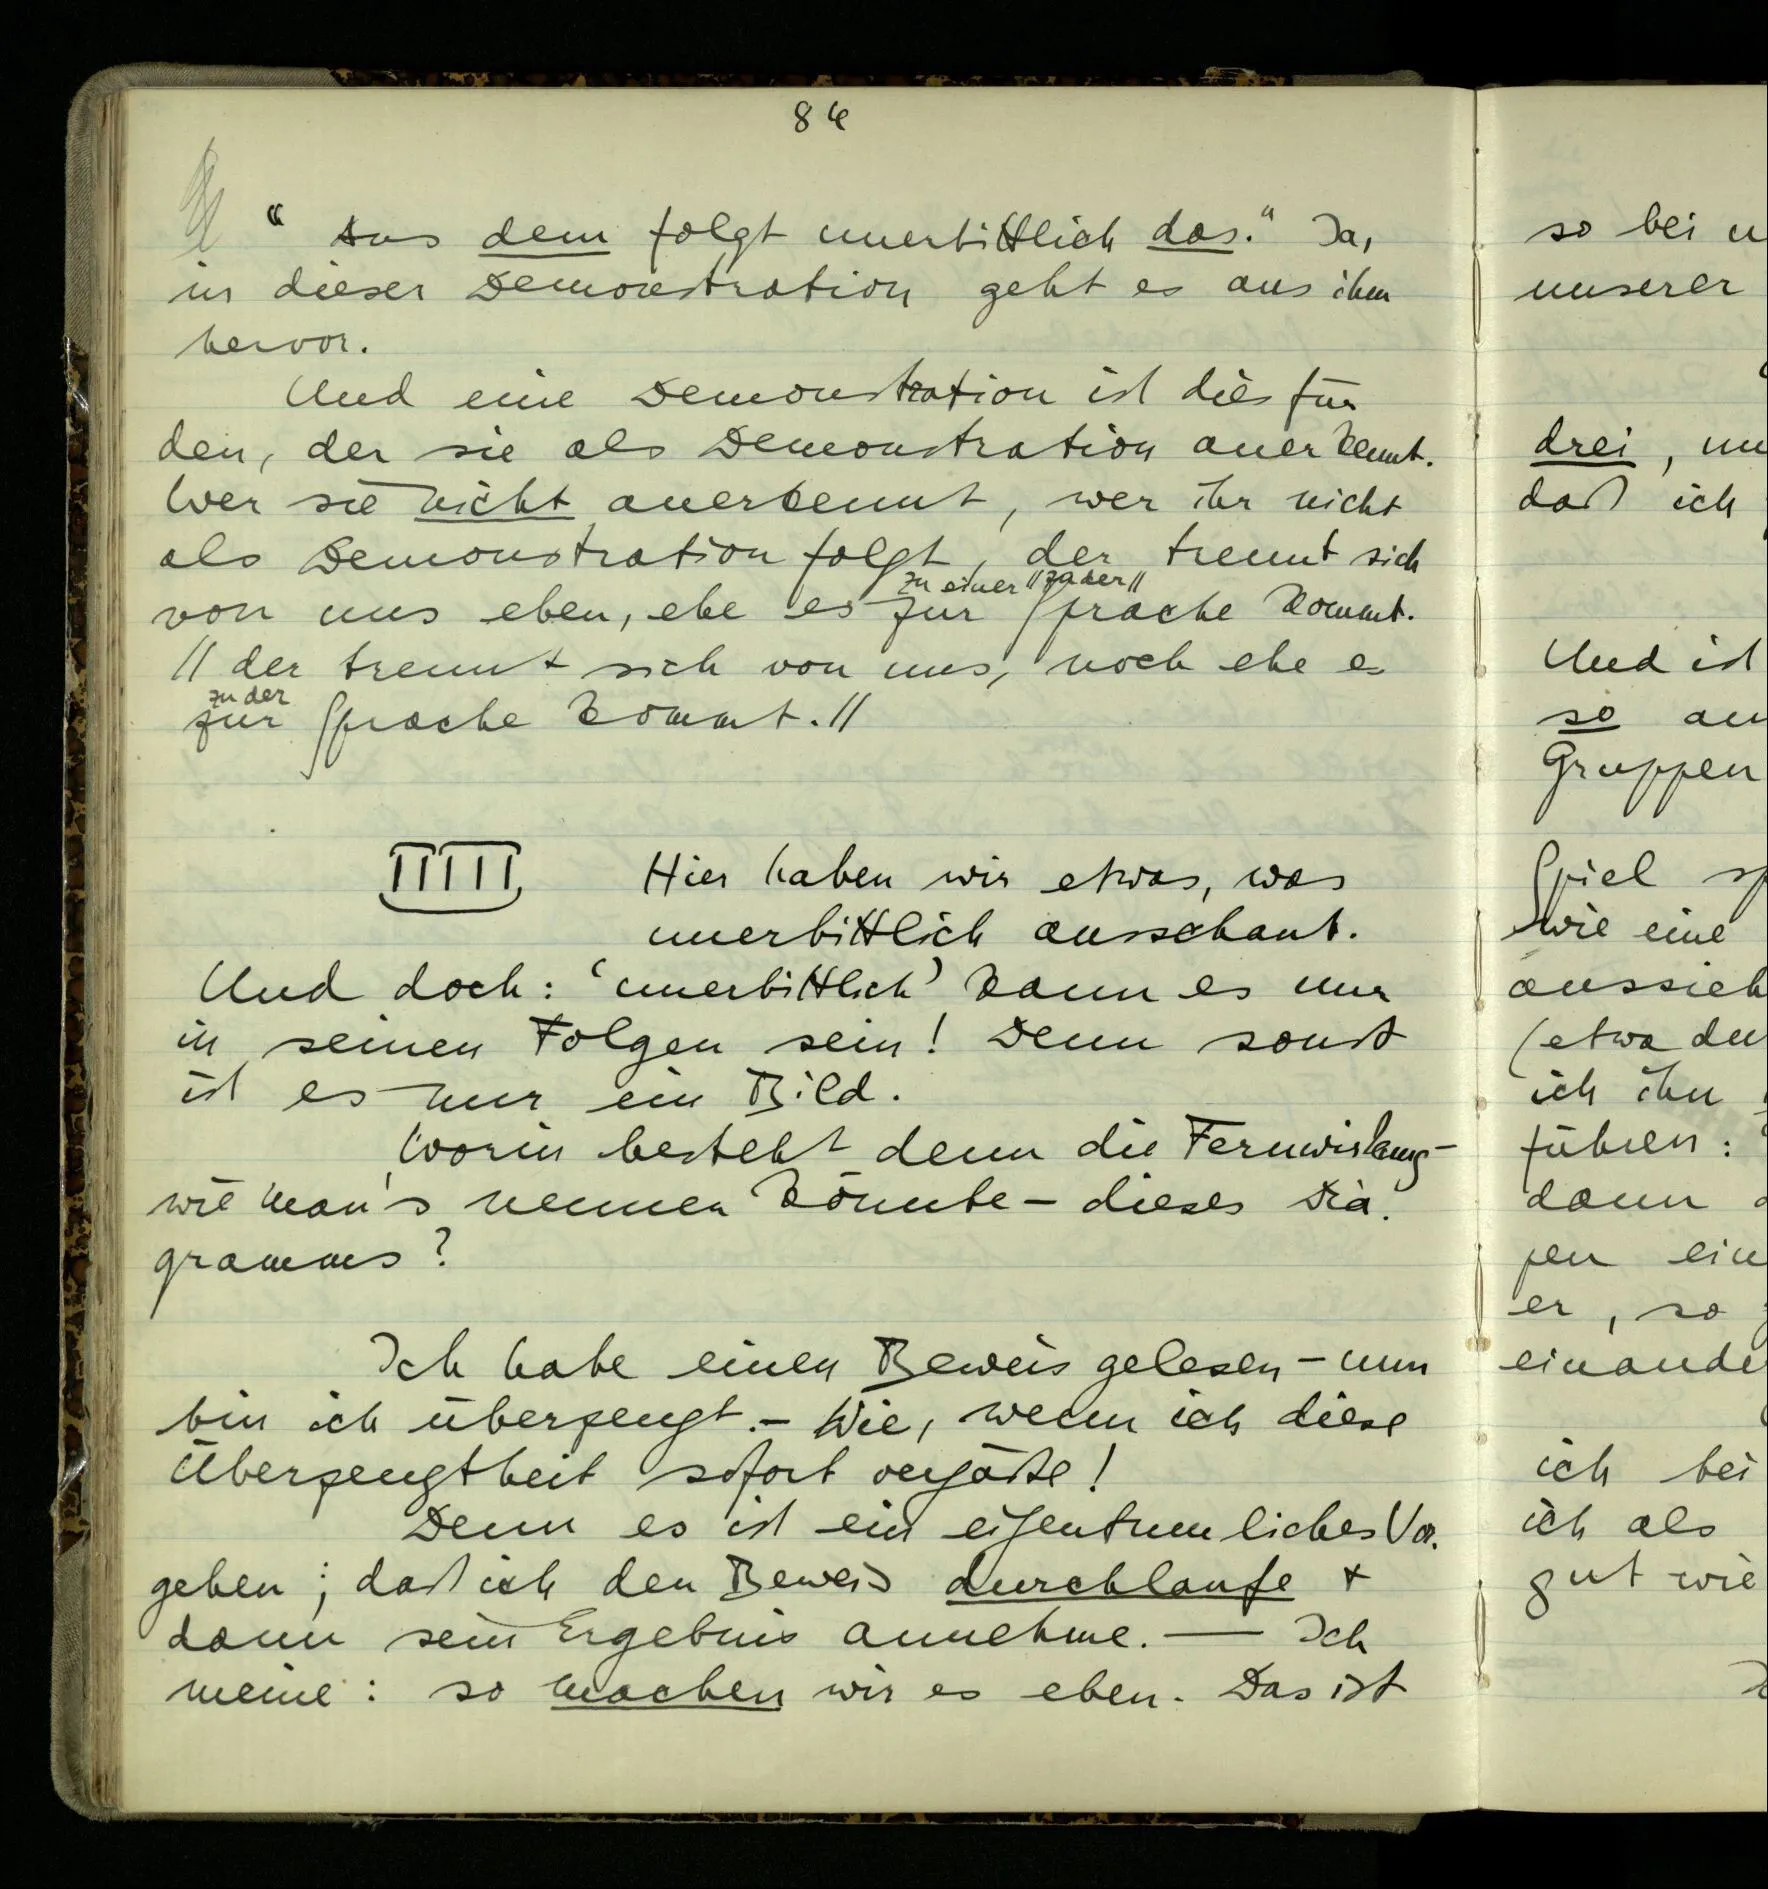 84
" Aus dem folgt unerbittlich das." Ja,
in dieser Demonstration geht es aus ihm
hervor.
Und eine Demonstration ist dies für
den, der sie als Demonstration anerkennt.
Wer sie nicht anerkennt, wer ihr nicht
als Demonstration folgt, der trennt sich
zu einer // zu der //
von uns eben, ehe es zur Sprache kommt.
// der trennt sich von uns, noch ehe es
zu der
zur Sprache kommt. //
Hier haben wir etwas, was
unerbittlich ausschaut.
Und doch: ‘unerbittlich’ kann es nur
in seinen Folgen sein! Denn sonst
ist es nur ein Bild.
Worin besteht denn die Fernwirkung –
wie man's nennen könnte – dieses Dia-
gramms?
Ich habe einen Beweis gelesen – nun
bin ich überzeugt. – Wie, wenn ich diese
Überzeugtheit sofort vergäße!
Denn es ist ein eigentümliches Vor-
gehen; daß ich den Beweis durchlaufe +
dann sein Ergebnis annehme. — Ich
meine: so machen wir es eben. Das ist
so bei
unserer
drei,
daß ich
Und ist
so
Gruppen
Spiel
wie eine
(etwa
ich ihn
führen:
dann
pen
er, so
ich bei
ich als
gut wie